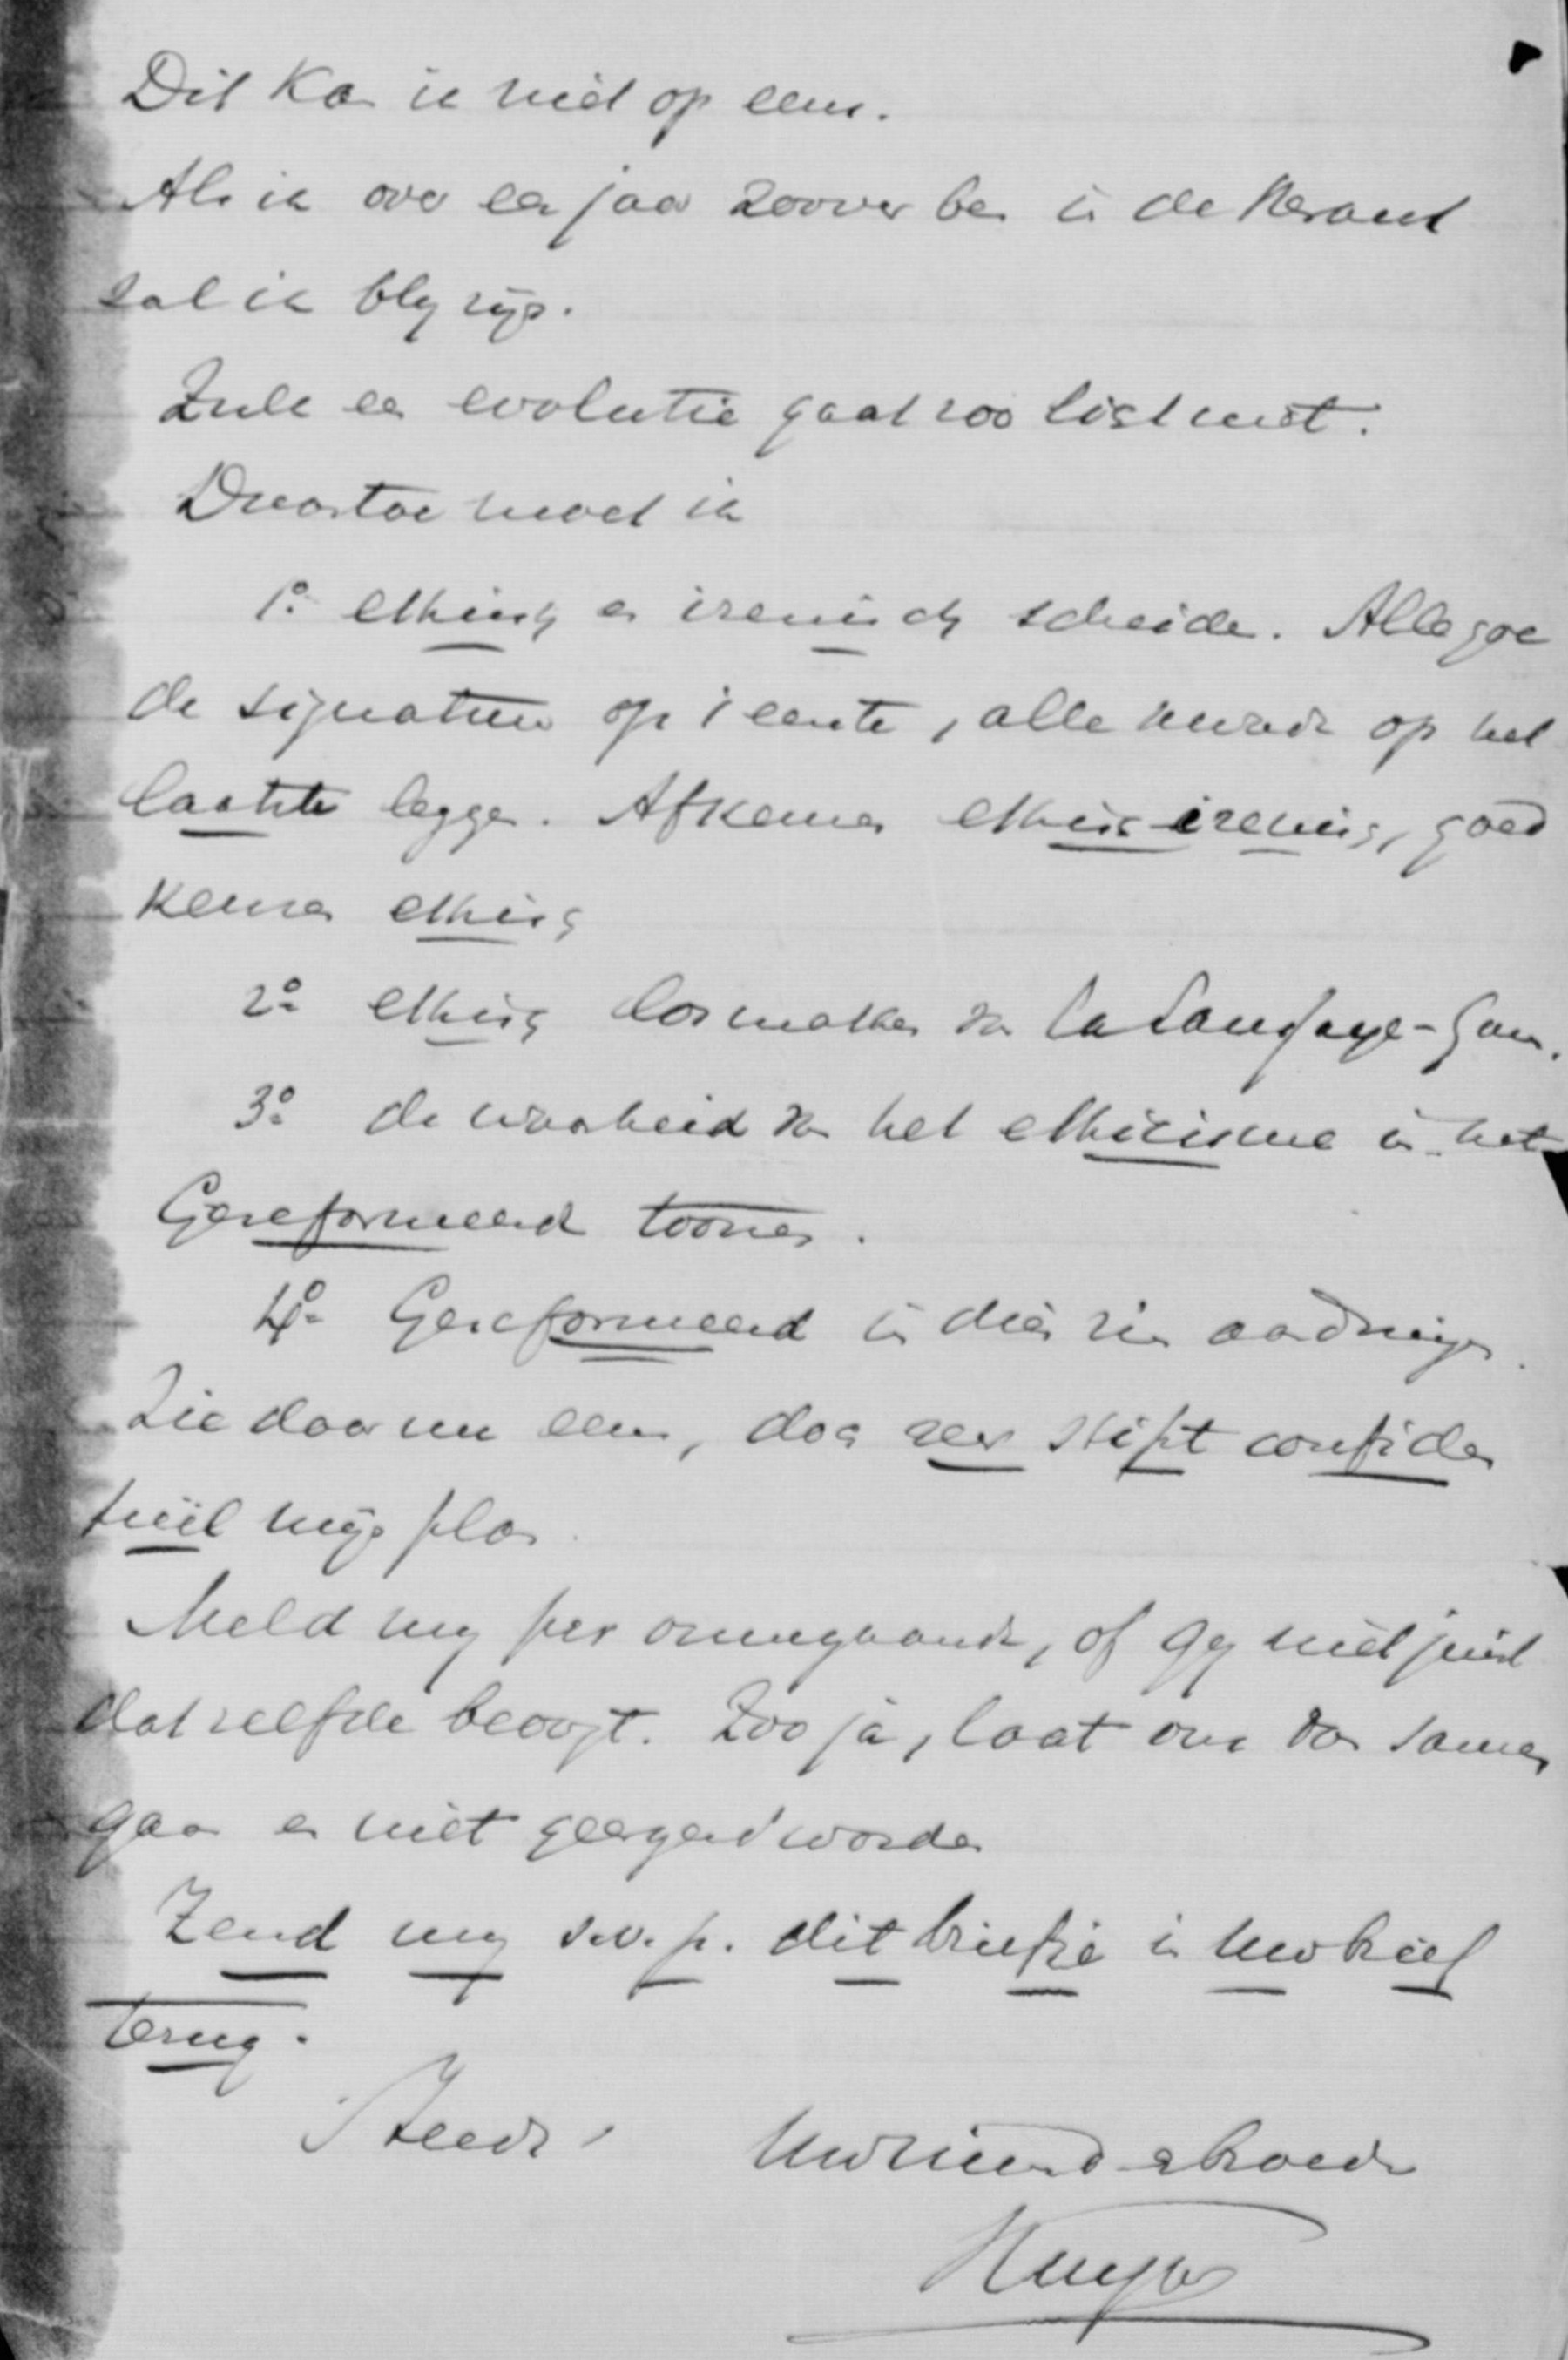 Dit kan ik niet op eens.
Als ik over een jaar zoover ben in de Heraut
zal ik bly zijn.
Zulk een evolutie gaat zoo licht niet.
Daartoe moet ik
1º ethisch en irenisch scheiden. Alle goe
de signaturen op 't eerste, alle kwade op het
laatste leggen. Afkeuren ethisch irenisch, goed
keuren ethisch
2º ethisch losmaken van la Saussaye-Gun.
3º de waarheid van het ethicisme in het
Gereformeerd toonen.
4º Gereformeerd in dien zin aandringen.
Zie daar nu eens, doch zeer stipt confiden
tieël mijn plan
Meld my per ommegaande, of gy niet juist
dat zelfde beoogt. Zoo ja, laat ons dan samen
gaan en niet geergerd worden
Zend my s.v.p. dit briefje in Uw brief
terug.
Steeds,
Uw vriend en broeder
Kuyper